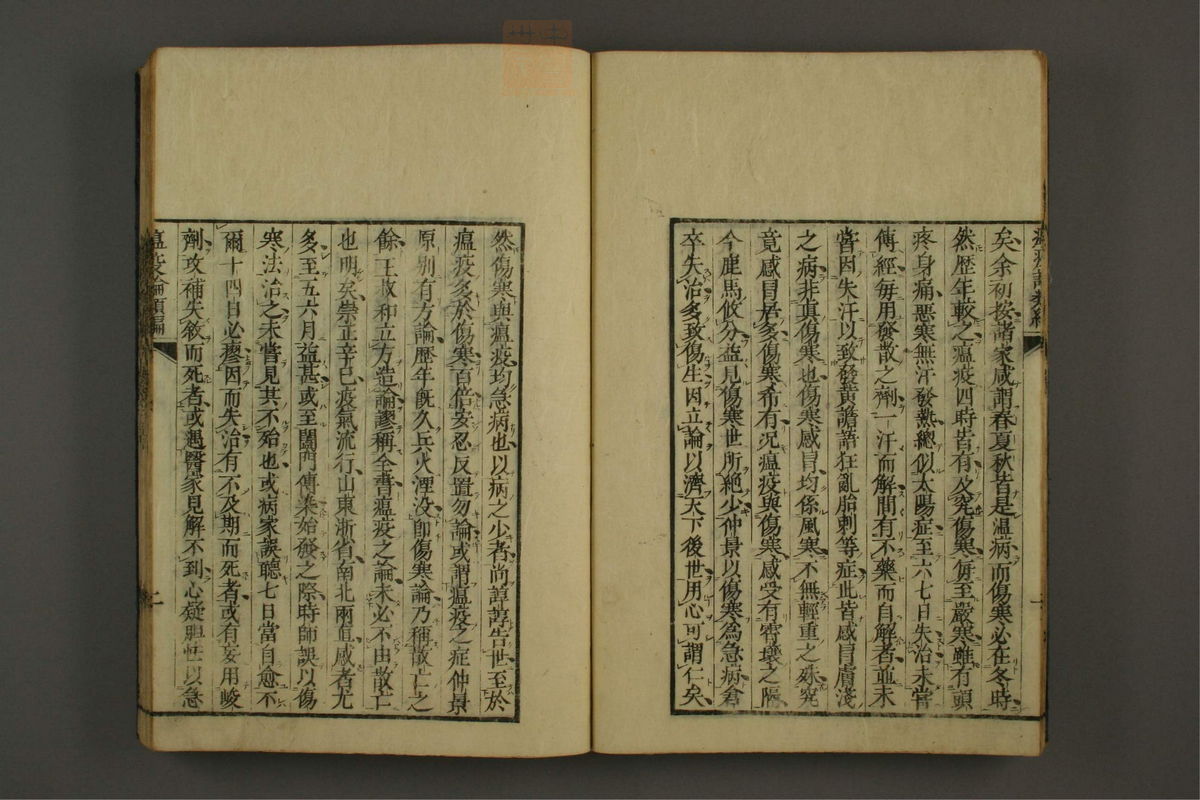 矣余初按諸家咸謂春夏秋皆是温病而傷寒必在冬時
然歴年較之瘟疫四時皆有及究傷寒毎至嚴寒雖有頭
疼身痛惡寒無汗發熱總似太陽症至六七日失治未嘗
傳經毎用發散之劑一汗而解間有不藥而自解者並未
嘗因失汗以致發黃譫語狂亂胎刺等症此皆感冒膚淺
之病非真傷寒也傷寒感冒均係風寒不無輕重之殊究
竟感冒居多傷寒希有况瘟疫與傷寒感受有霄壤之隔
今鹿馬攸分益見傷寒世所絶少仲景以傷寒爲急病倉
卒失治多致傷生因立論以濟天下後世用心可謂仁矣
然傷寒與瘟疫均急病也以病之少者尚諄諄告世至於
瘟疫多於傷寒百倍安忍反置勿論或謂瘟疫之症仲景
原别有方論歴年旣久兵火湮没卽傷寒論乃稱散亡之
餘王叔和立方造論謬稱全書瘟疫之論未必不由散亡
也明矣崇正辛巳疫氣流行山東浙省南北兩直感者尤
多至五六月益甚或至闔門傳染始發之際時師誤以傷
寒法治之未嘗見其不殆也或病家誤聽七日當自愈不
爾十四日必瘳因而失治有不及期而死者或有妄用峻
劑攻補失敘而死者或遇醫家見解不到心疑膽怯以急
瘟疫論類編
二